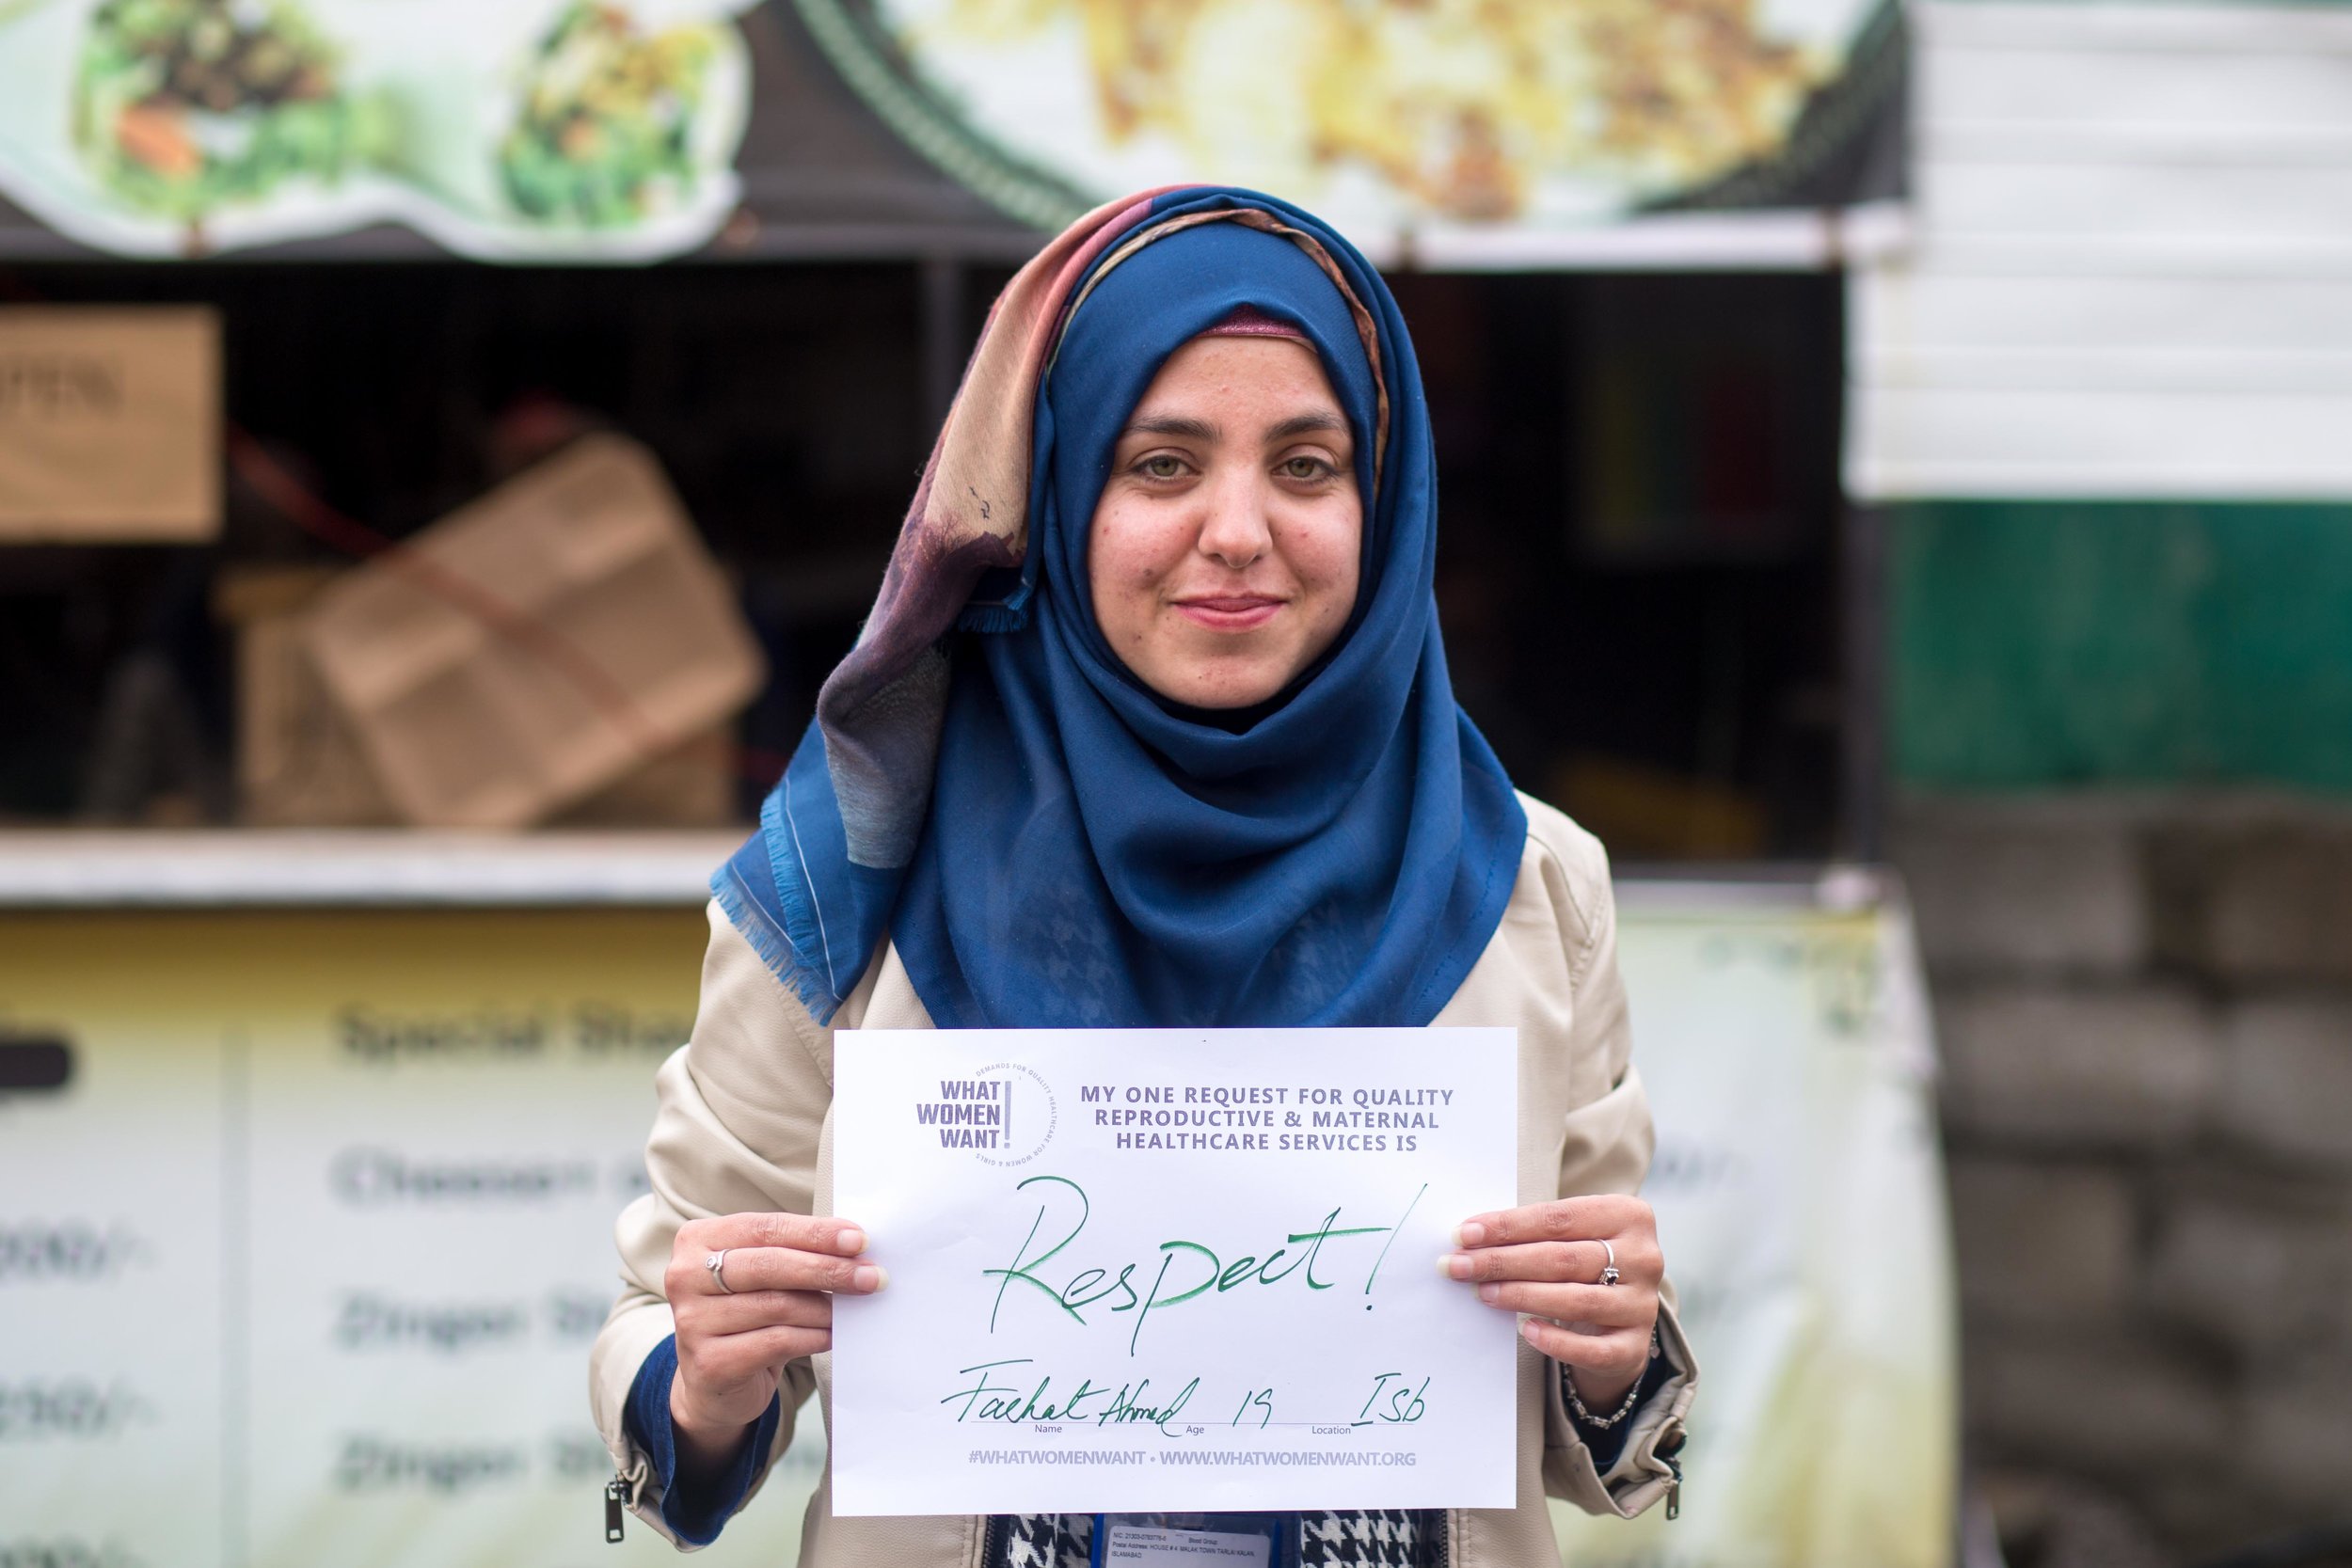 PEN
Special
WHAT
WOMEN
WANT!
DEMANDS FOR QUALITY HEALTHCARE FOR WOMEN & GIRLS
MY ONE REQUEST FOR QUALITY
REPRODUCTIVE & MATERNAL
HEALTHCARE SERVICES IS
Respect!
Farhat Ahmed 19 Isb
Name Age Location
#WHATWOMENWANT • WWW.WHATWOMENWANT.ORG
Zinger
Zinger